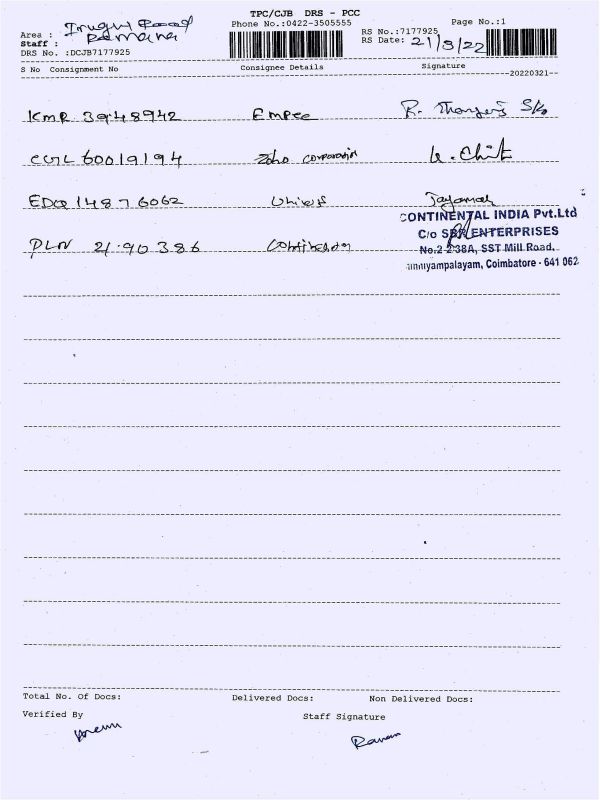 TPC/CJB DRS - PCC
Phone No.:0422-3505555
Page No.:1
Area : Road
Staff : Ramana
DRS No. :DCJB7177925
RS No.:7177925
RS Date: 21/3/22
S No Consignment No Consignee Details Signature
--20220321--
KMR 3948942 Empee
60019194 Zoho corporation
14876062
PLN 2190386 Continental
CONTINENTAL INDIA Pvt.Ltd
C/o SBR ENTERPRISES
No.2-238A, SST Mill Road,
Coimbatore - 641 062
Total No. Of Docs: Delivered Docs: Non Delivered Docs:
Verified By Staff Signature
Raman